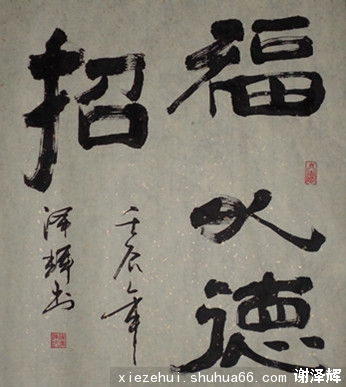 福以德
招
壬辰年
泽辉书
xiezehui.shuhua66.com 谢泽辉